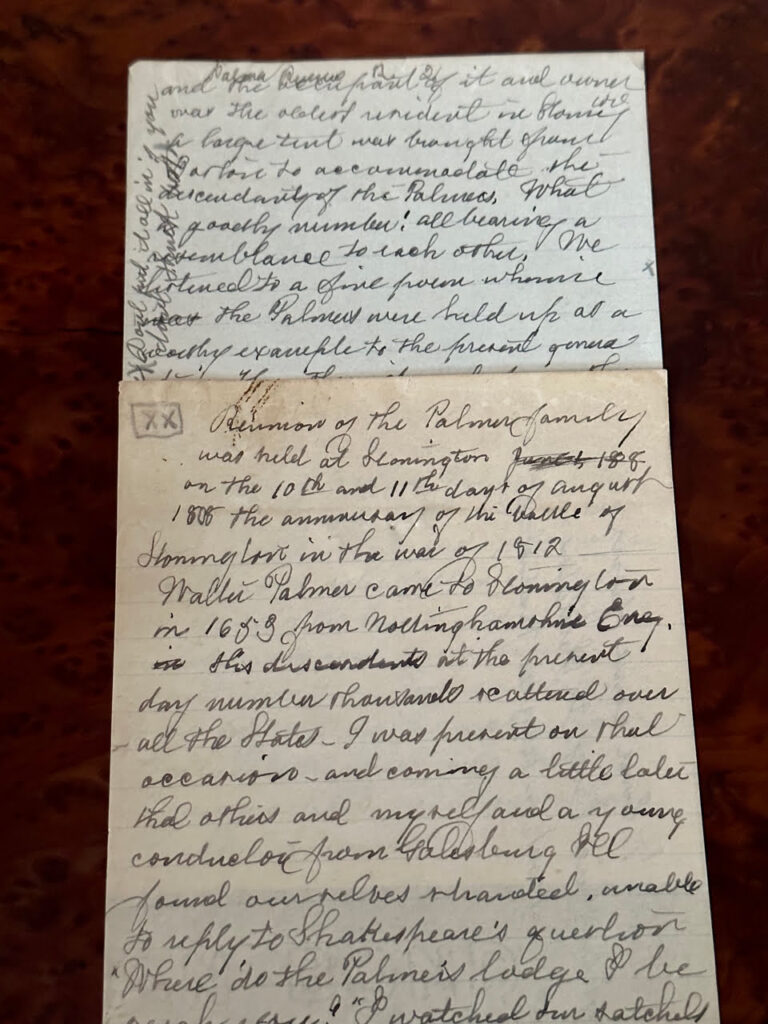 and the occupant of it and owner
was the oldest resident in Stoning
a large tent was brought from
to accommodate the
descendants of the Palmers. What
a goodly number! all bearing a
resemblance to each other. We
listened to a fine poem wherein
was the Palmers were held up as a
worthy example to the present genera
XX
Reunion of the Palmer family
was held at Stonington June 1, 188
on the 10th and 11th days of august
the anniversary of the Battle of
Stonington in the war of 1812
Walter Palmer came to Stonington
in 1653 from Nottinghamshire Eng.
in His descendents at the present
day number thousands scattered over
all the States - I was present on that
occasion - and coming a little later
that others and myself and a young
conductor from Galesburg Ill
found ourselves stranded, unable
to reply to Shakespeare's question
"Where do the Palmers lodge I be
you?" I watched our satchels